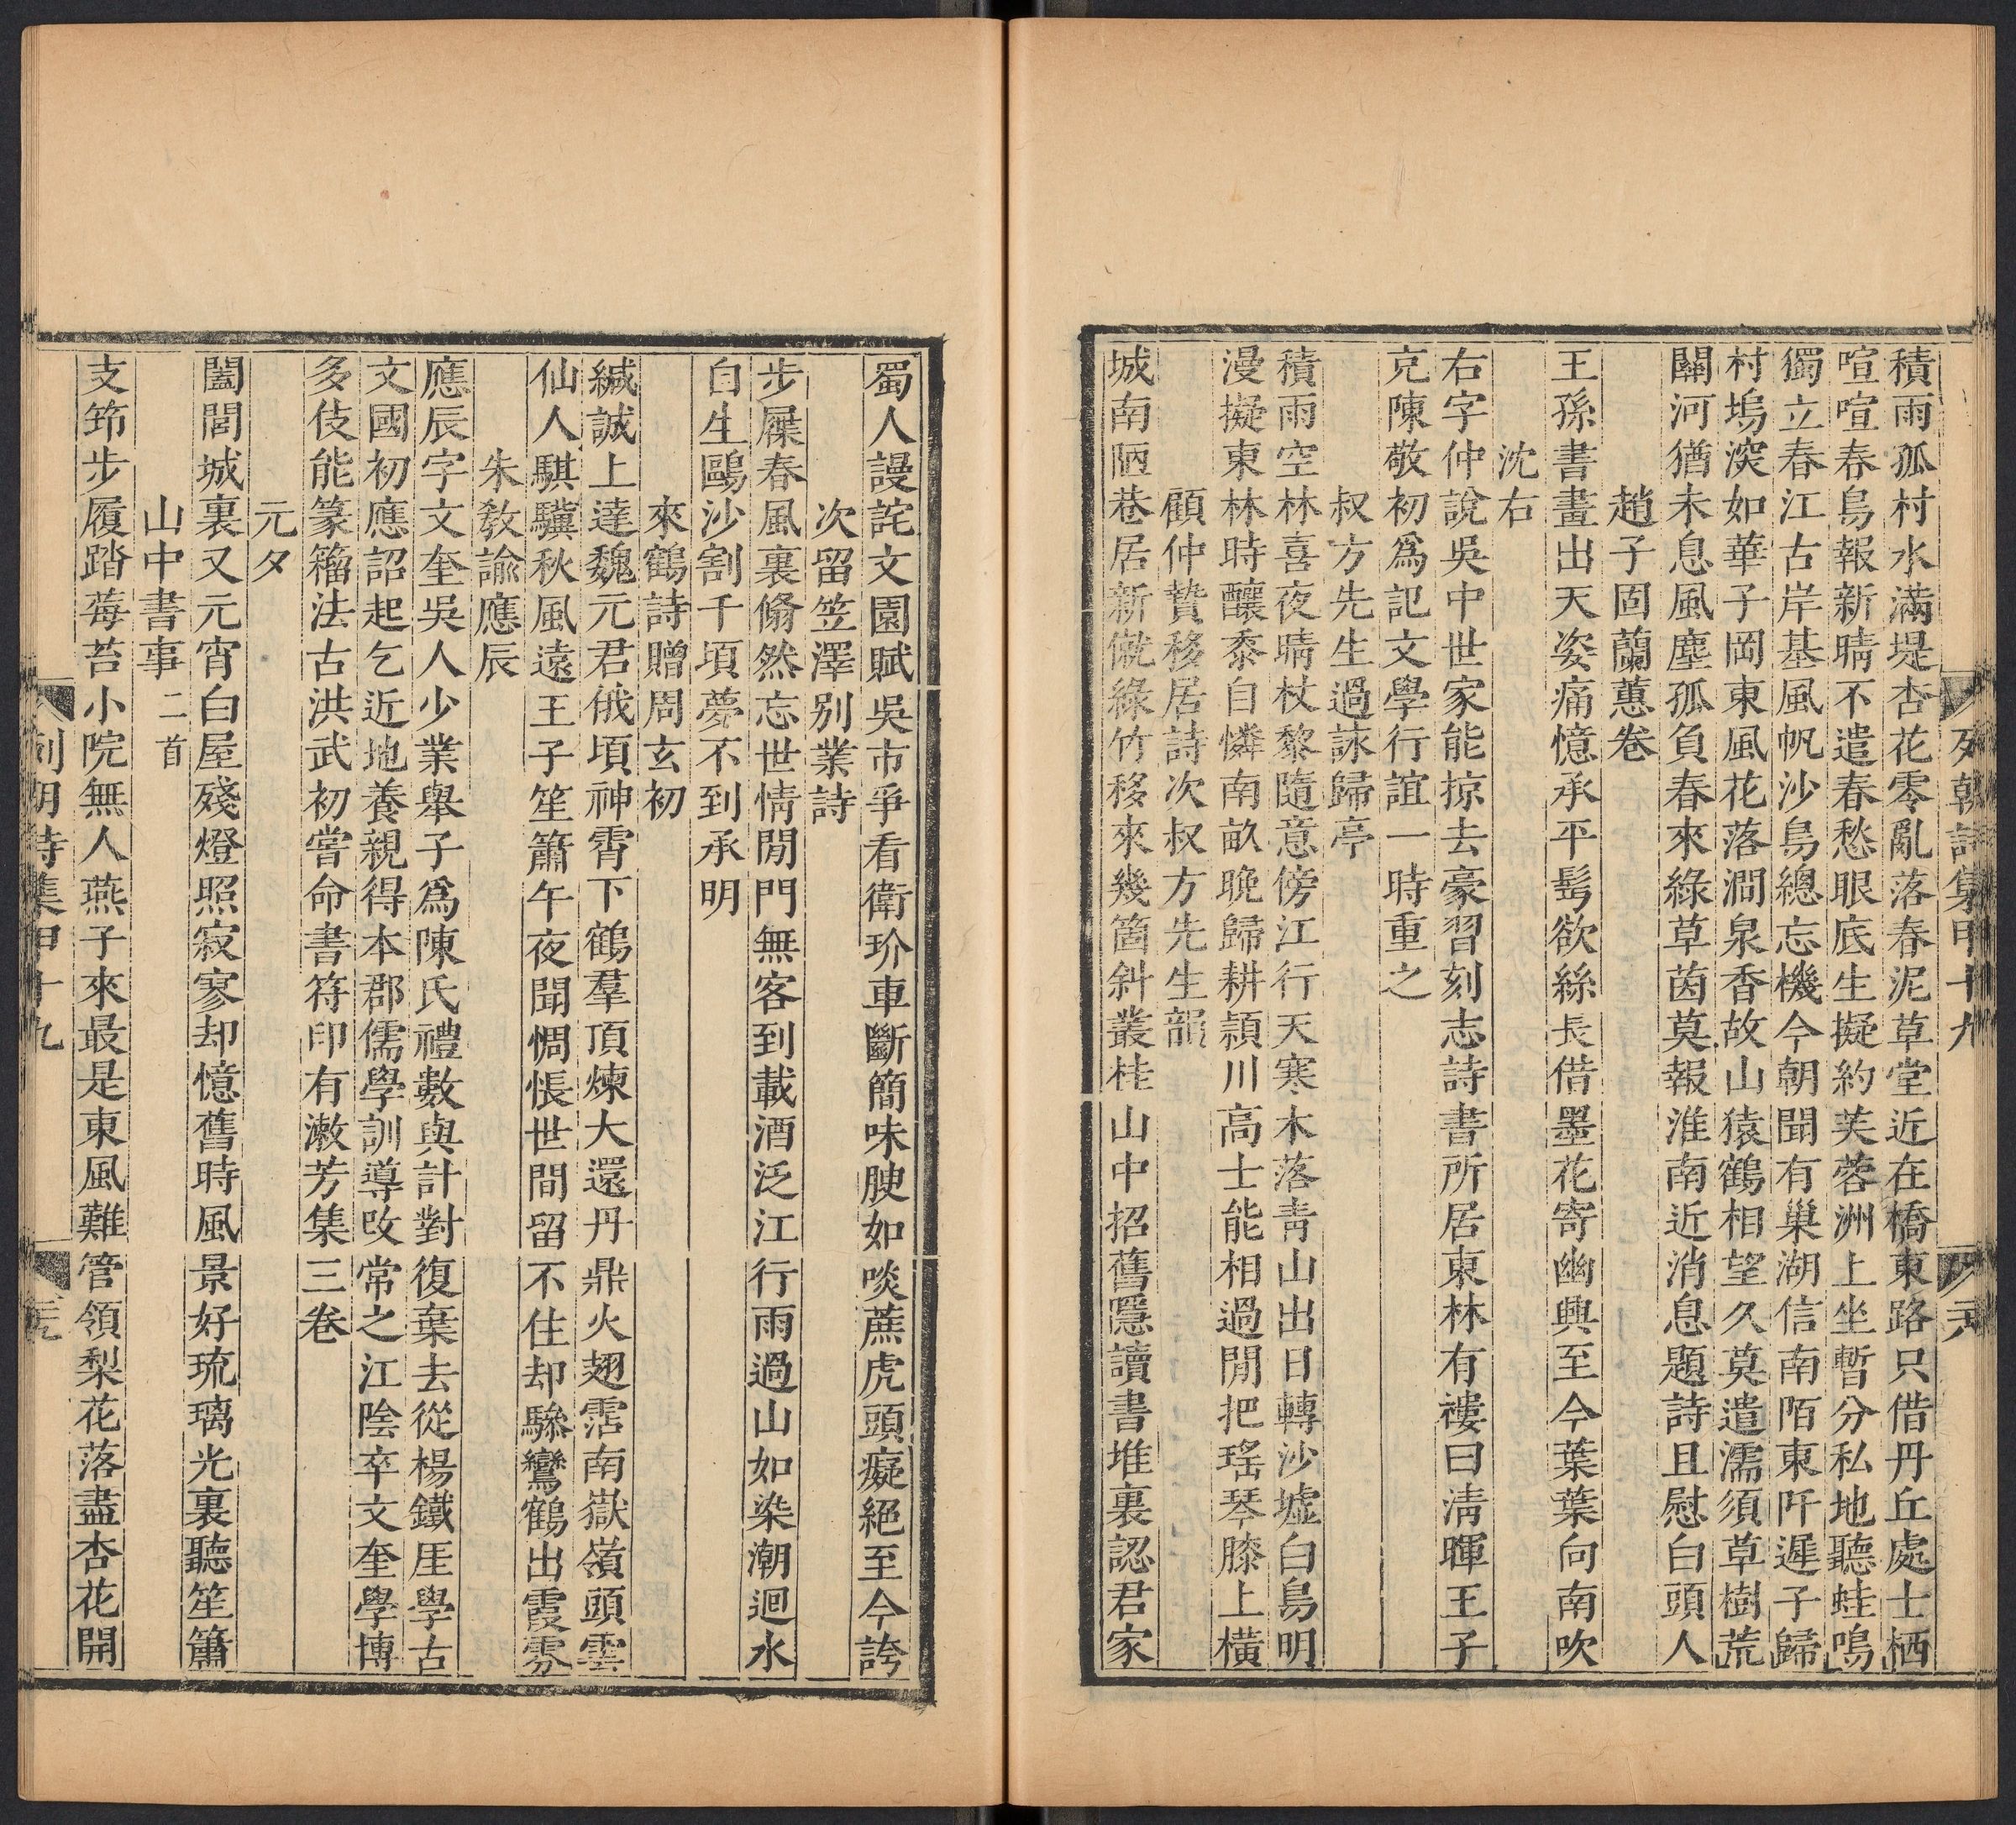 列朝詩集甲十九
積雨孤村水滿堤杏花零亂落春泥草堂近在橋東路只借丹丘處士栖
喧喧春鳥報新晴不遣春愁眼底生擬約芙蓉洲上坐暫分私地聽蛙鳴
獨立春江古岸基風帆沙鳥總忘機今朝聞有巢湖信南陌東阡遲子歸
村塢深如華子岡東風花落澗泉香故山猿鶴相望久莫遣濡須草樹荒
關河猶未息風塵孤負春來綠草茵莫報淮南近消息題詩且慰白頭人
趙子固蘭蕙卷
王孫書畫出天姿痛憶承平鬂欲絲長借墨花寄幽興至今葉葉向南吹
沈右
右字仲說吳中世家能掠去豪習刻志詩書所居東林有褸曰清暉王子
克陳敬初爲記文學行誼一時重之
叔方先生過詠歸亭
積雨空林喜夜晴杖黎隨意傍江行天寒木落青山出日轉沙墟白鳥明
漫擬東林時釀黍自憐南畝晚歸耕潁川高士能相過閒把瑤琴膝上橫
顧仲贄移居詩次叔方先生韻
城南陋巷居新僦綠竹移來幾箇斜叢桂山中招舊隱讀書堆裏認君家
蜀人謾詫文園賦吳市爭看衛玠車斷簡味腴如啖蔗虎頭癡絕至今誇
次留笠澤別業詩
步屧春風裏翛然忘世情閒門無客到載酒泛江行雨過山如染潮迴水
自生鷗沙割千頃夢不到承明
來鶴詩贈周玄初
緘誠上達魏元君俄頃神霄下鶴羣頂煉大還丹鼎火翅霑南嶽嶺頭雲
仙人騏驥秋風遠王子笙簫午夜聞惆悵世間留不住却驂鸞鶴出霞雰
朱敎諭應辰
應辰字文奎吳人少業舉子爲陳氏禮數與計對復棄去從楊鐵厓學古
文國初應詔起乞近地養親得本郡儒學訓導改常之江陰卒文奎學博
多伎能篆籀法古洪武初嘗命書符印有漱芳集三卷
元夕
闔閭城裏又元宵白屋殘燈照寂寥却憶舊時風景好琉璃光裏聽笙簫
山中書事二首
支筇步履踏莓苔小院無人燕子來最是東風難管領梨花落盡杏花開
列朝詩集甲十九